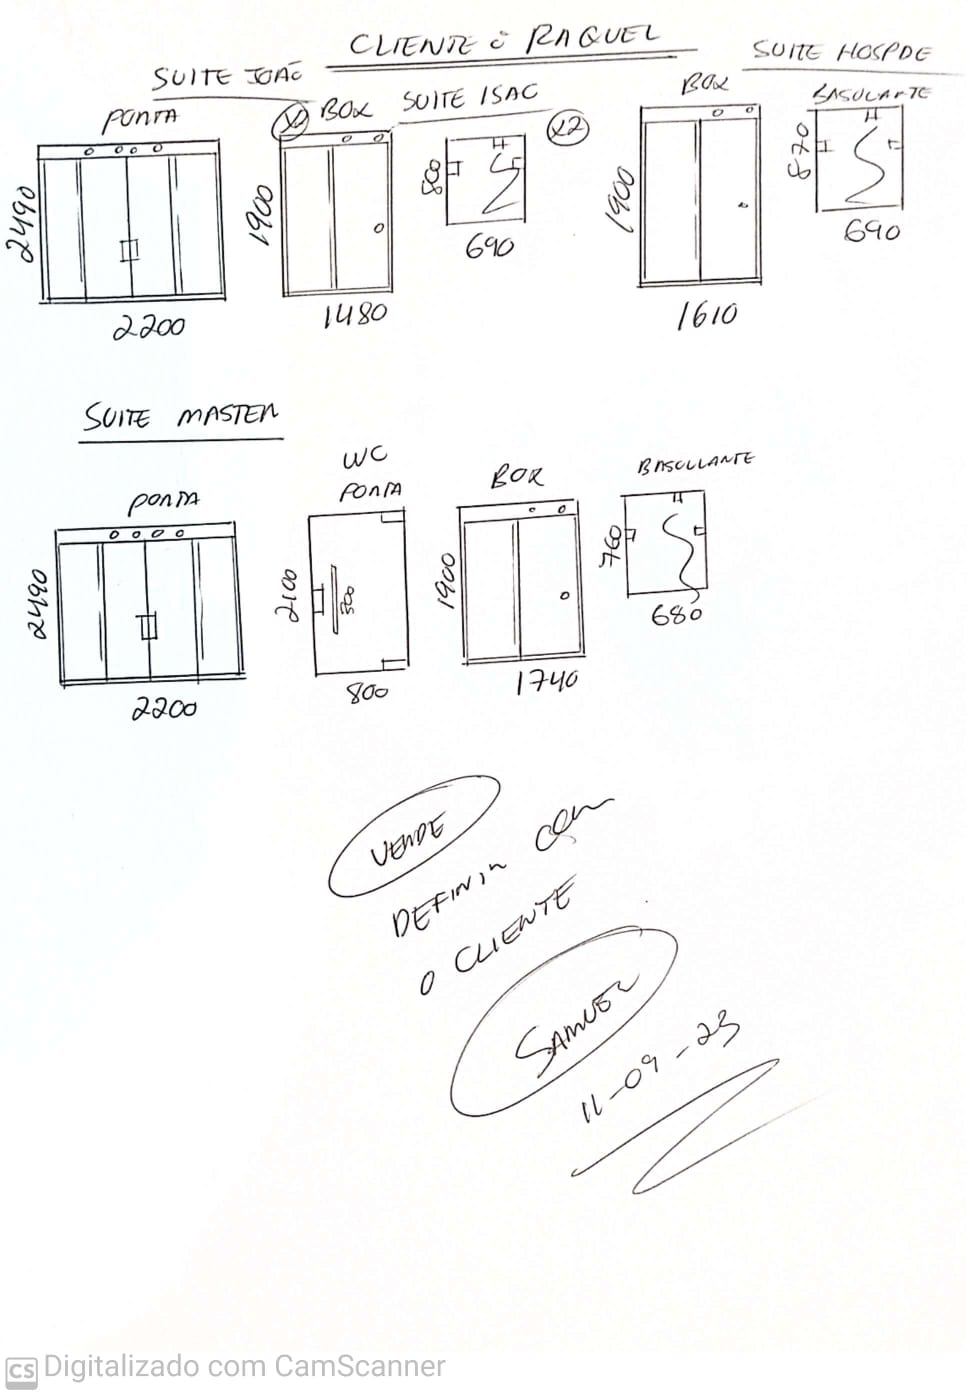 CLIENTE: RAQUEL
SUITE JOAÕ
SUITE ISAC
SUITE HOSPDE
PORTA
BOX
X2
BOX
BASULANTE
2490
1900
800
1900
870
2200
1480
690
1610
690
SUITE MASTER
PORTA
WC
PORTA
BOX
BASULLANTE
2490
2100
500
1900
760
2200
800
1740
680
VERDE
DEFINIR COM
O CLIENTE
SAMUEL
11-09-23
CS Digitalizado com CamScanner